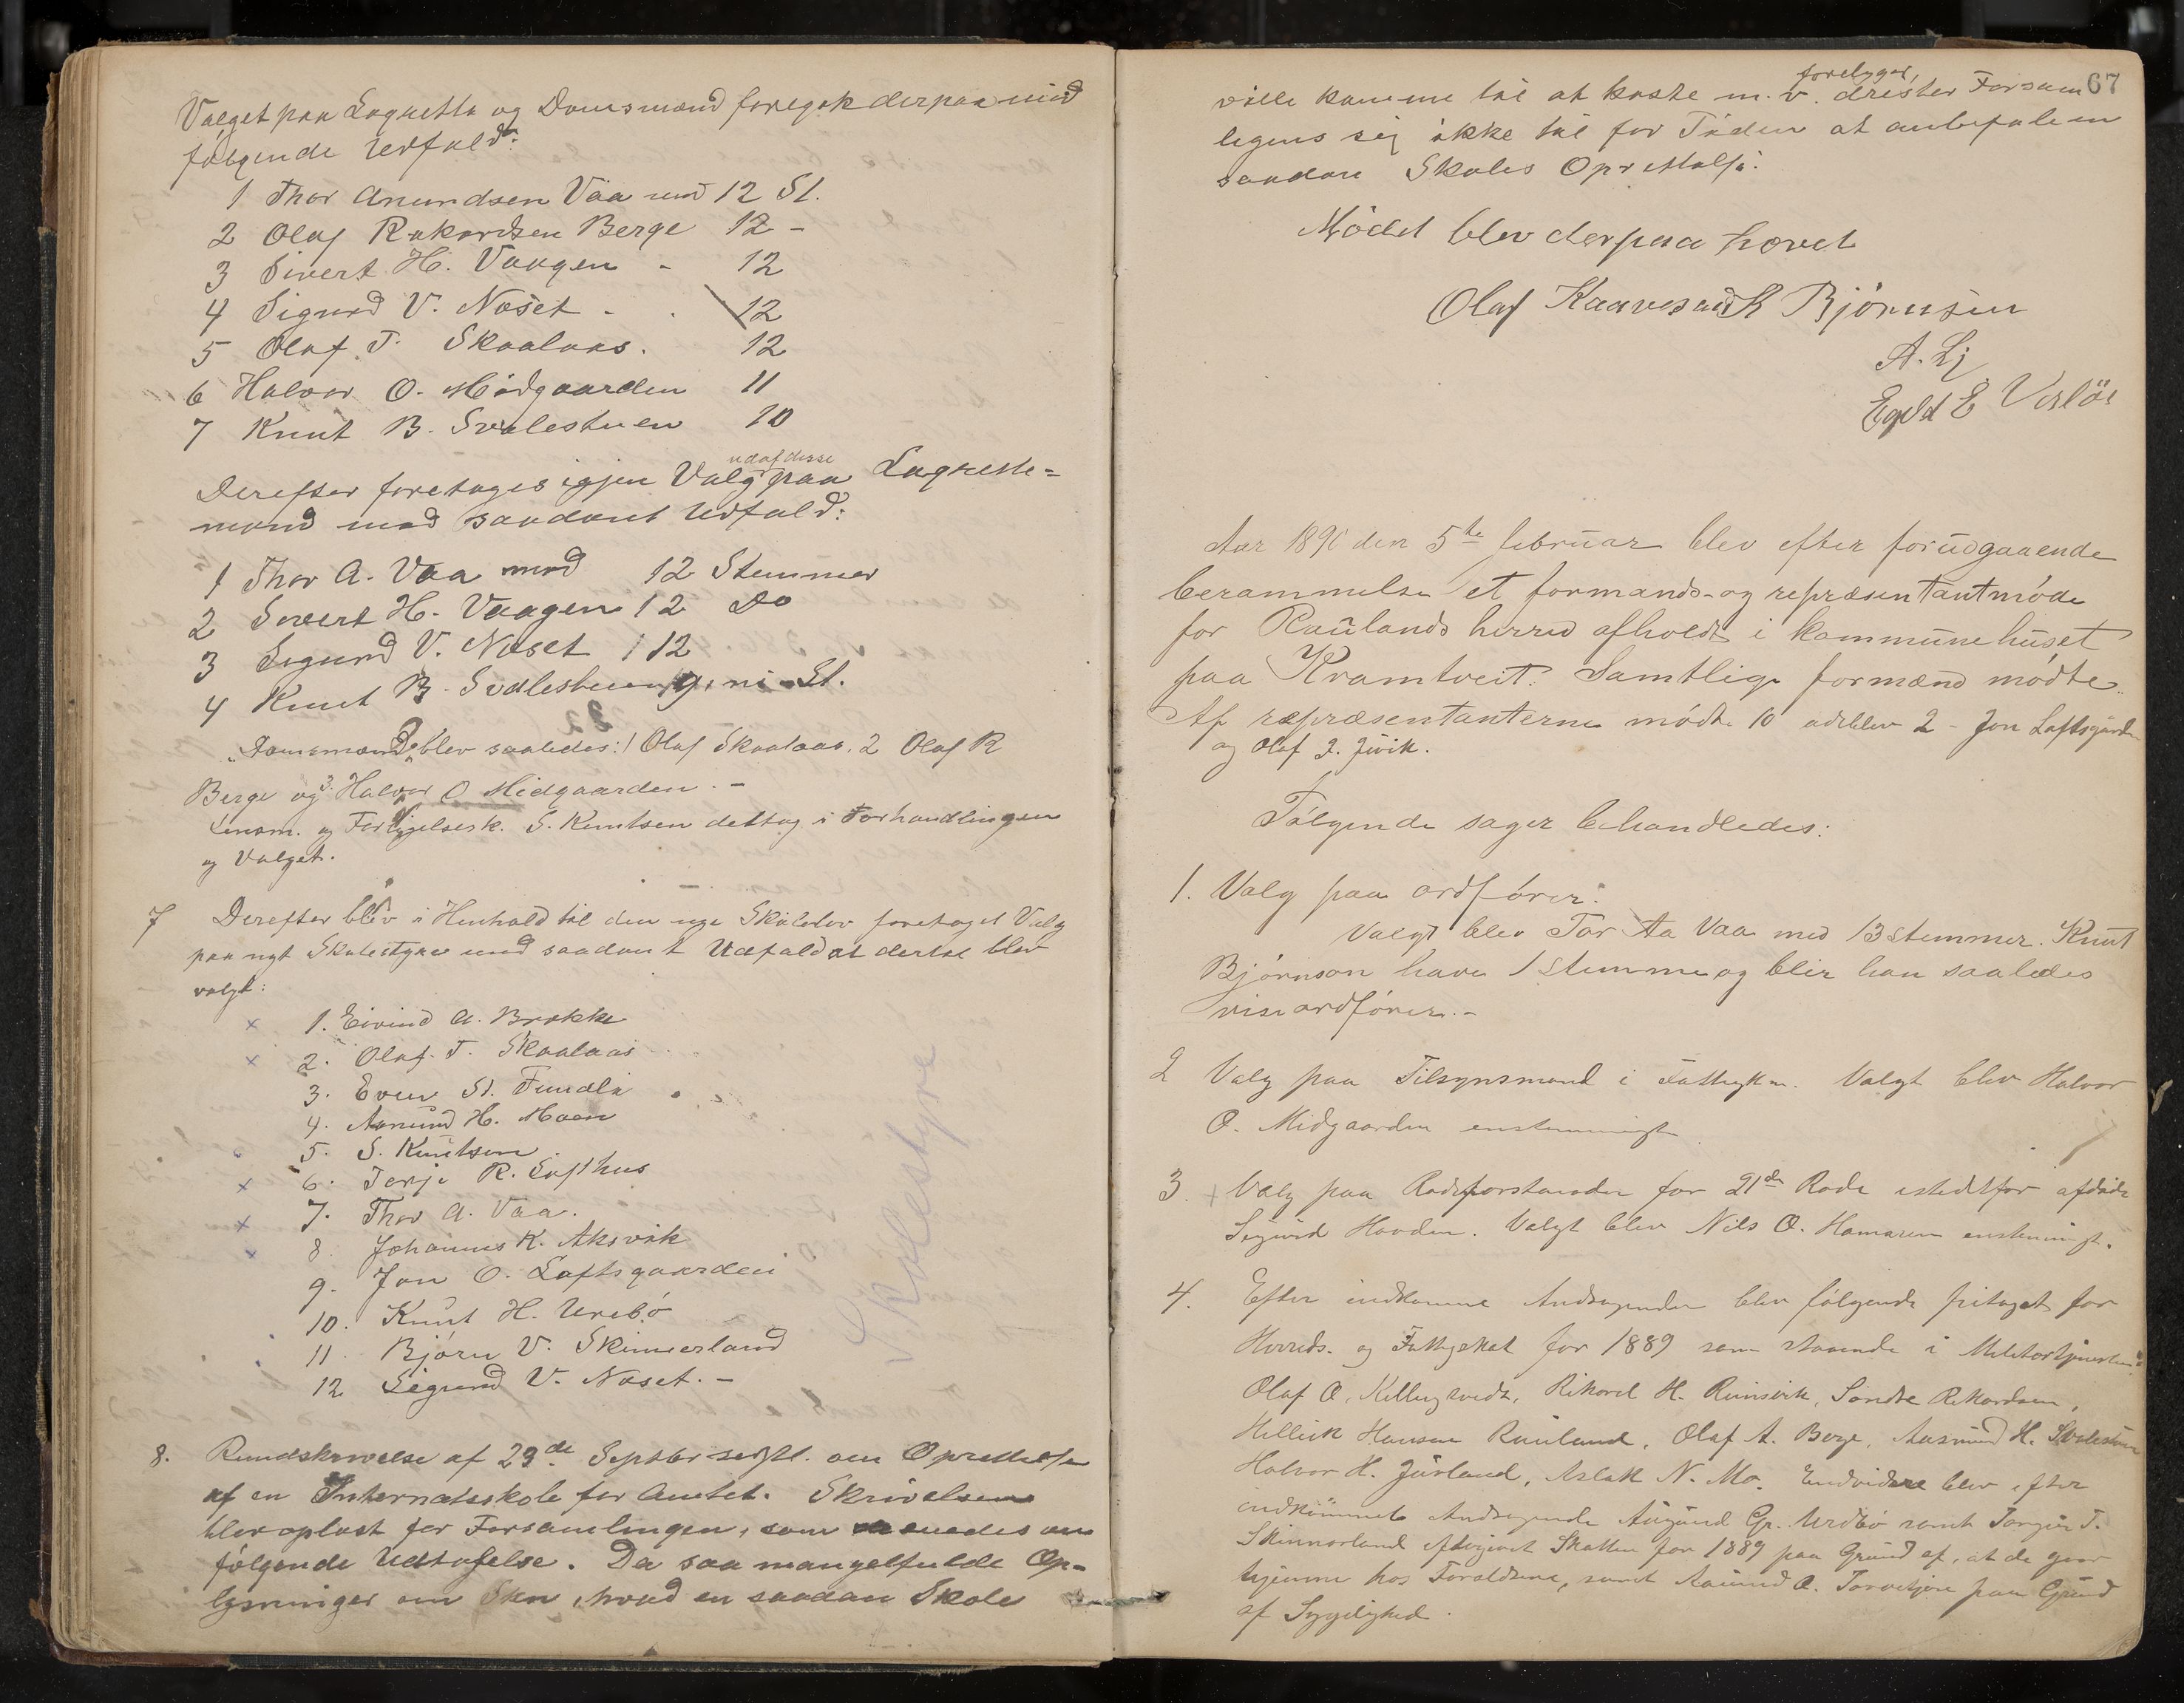 Valget paa Lagrette og Domsmænd foregik derpaa med
følgende Udfald:
1 Thor Anundsen Vaa med 12 St.
2 Olaf Rikardsen Berge 12 -
3 Sivert H. Vaagen - 12
4 Sigurd V. Næset - . 12
5 Olaf T. Skaalaas. 12
6 Halvor O. Midgaarden 11
7 Knut B. Svalestuen 10
Derefter foretages igjen Valg udaf disse paa Lagrette=
mænd med saadant Udfald:
1 Thor A. Vaa med 12 Stemmer
2 Sivert H. Vaagen 12 Do
3 Sigurd V. Næset 12
4 Knut B. Svalestuen 9, ni St.
Domsmænd blev saaledes: 1 Olaf Skaalaas. 2 Olaf R
Berge og 3. Halvor O Midgaarden. -
Lensm. og Forligelsesk. S. Knutsen deltog i Forhandlingen
og Valget.
7 Derefter blev i Henhold til den nye Skolelov foretaget Valg
paa nyt Skolestyre med saadant Udfald at dertil blev
valgt:
x 1. Eivind A. Brokke
x 2. Olaf T. Skaalaas
3. Even St. Fundli
4. Asmund H. Moen
5. S. Knutsen
x 6. Terje R. Lofthus
x 7. Thor A. Vaa.
x 8. Johannes K. Aksvik
9. Jon O. Loftsgaarden
10. Knut H. Urebø
11. Bjørn V. Skinnerland
12 Sigurd V. Næset. -
Skolestyre
8. Rundskrivelse af 29de Septbr sidstl. om Oprettelse
af en Internatsskole for Amtet. Skrivelsen
blev oplæst for Forsamlingen, som enedes om
følgende Udtalelse. Da saa mangelfulde Op-
lysninger om , hvad en saadan Skole
67
vilde komme til at koste m. v. foreligger, drister Forsam
lingens sig ikke til for Tiden at anbefale en
saadan Skoles Oprettelse.
Mødet blev derpaa hævet
Olaf Knut Bjørnsen
A. Lj
E Verløs
Aar 1890 den 5te februar blev efter forudgaaende
berammelse et formands- og repræsentantmøde
for Raulands herred afholdt i kommunehuset
paa Kramtveit. Samtlige formænd mødte.
Af repræsentanterne mødte 10 udeblev 2 - Jon Loftsgarden
og Olaf J. Juvik.
Følgende sager behandledes:
1. Valg paa ordfører:
Valgt blev Tor Aa Vaa med 13 stemmer. Knut
Bjørnson havde 1 stemme og blir han saaledes
viseordfører. -
2 Valg paa Tilsynsmand i Fattigk. Valgt blev Halvor
O. Midgaarden enstemmigt.
3. + Valg paa Rodeforstander for 21de Rode istedetfor afdøde
Sigurd Hovden. Valgt blev Nils O. Hamaren enstemmigt.
4. Efter indkomne Andragender blev følgende fritaget for
Herreds- og Fattigskat for 1889 som staaende i Militærtjenesten:
Olaf O. Killingtveit, Rikard H. Rinsvik, Søndre Rikardsen,
Hellik Hansen Rauland, Olaf A. Berge, Aasmund H. Svalestuen
Halvor H. Jørland, Aslak N. Mo. Endvidere blev efter
indkomne Andragende Augund Gr. Urdbø samt Torgeir T.
Skinnarland eftergivet Skatten for 1889 paa Grund af, at de gaar
hjemme hos Forældrene, samt Aamund O. Torvetjøn paa Grund
af Sygelighed.